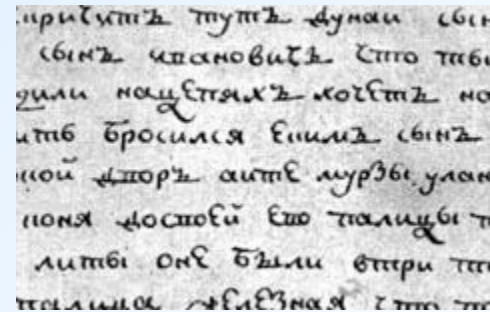 кричитъ тутъ дунаи сын
сынъ ивановичъ что ты
дили нацепяхъ хочетъ на
ить бросился екимъ сынъ
кой дворъ аите мурзы улан
коня его палицы
литы оне были втри
палица железная что